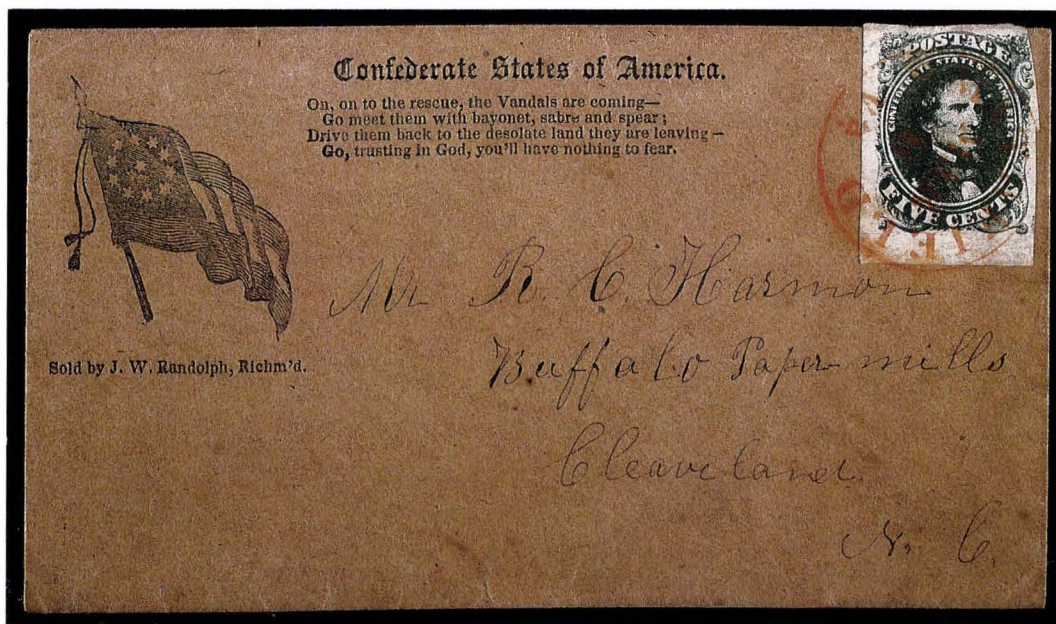 Confederate States of America.
On, on to the rescue, the Vandals are coming—
Go meet them with bayonet, sabre and spear;
Drive them back to the desolate land they are leaving—
Go, trusting in God, you'll have nothing to fear.
POSTAGE
CONFEDERATE STATES OF AMERICA
FIVE CENTS
Mr R. C. Harmon
Buffalo Paper mills
Cleaveland
N. C.
Sold by J. W. Randolph, Richm'd.